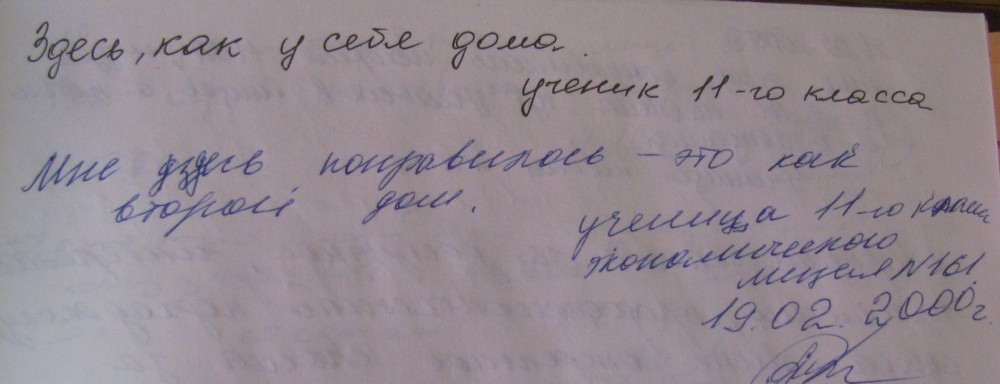 Здесь, как у себя дома.
ученик 11-го класса
Мне здесь понравилось – это как
второй дом.
ученица 11-го класса
экономического
лицея №161.
19.02.2000г.